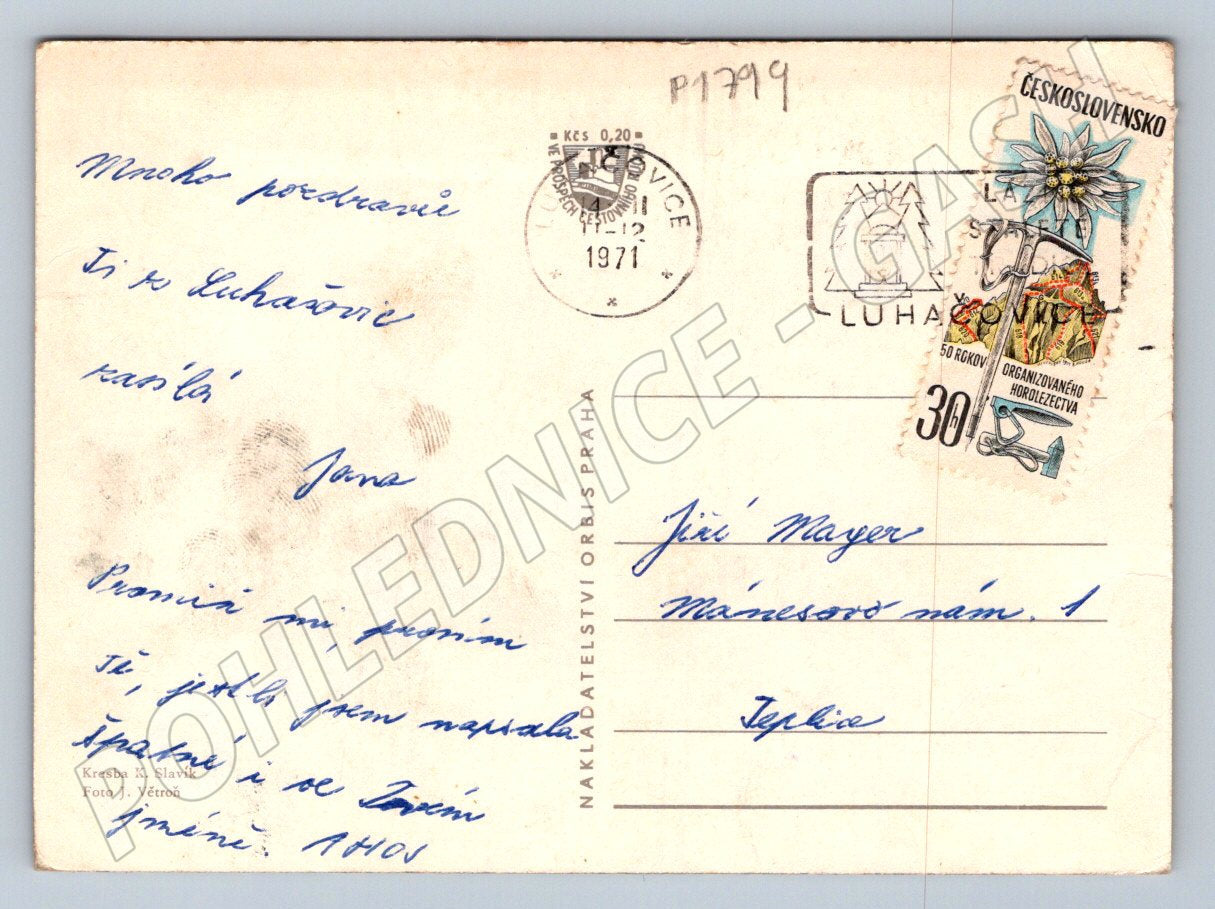 P1799
Kčs 0,20
VE PROSPĚCH CESTOVNÍHO
LUHAČOVICE
1971
LUHAČOVICE
ČESKOSLOVENSKO
50 ROKOV
ORGANIZOVANÉHO
HOROLEZECTVA
30h
Mnoho pozdravů
Ti z Luhačovic
zasílá
Jana
Promiň mi, prosím
Tě, jestli jsem napsala
špatně i ve Tvém
jméně. AHOJ
Kresba K. Slavík
Foto J. Větroň
NAKLADATELSTVÍ ORBIS PRAHA
Jiří Mayer
Mánesovo nám. 1
Teplice
POHLEDNICE - GASCH